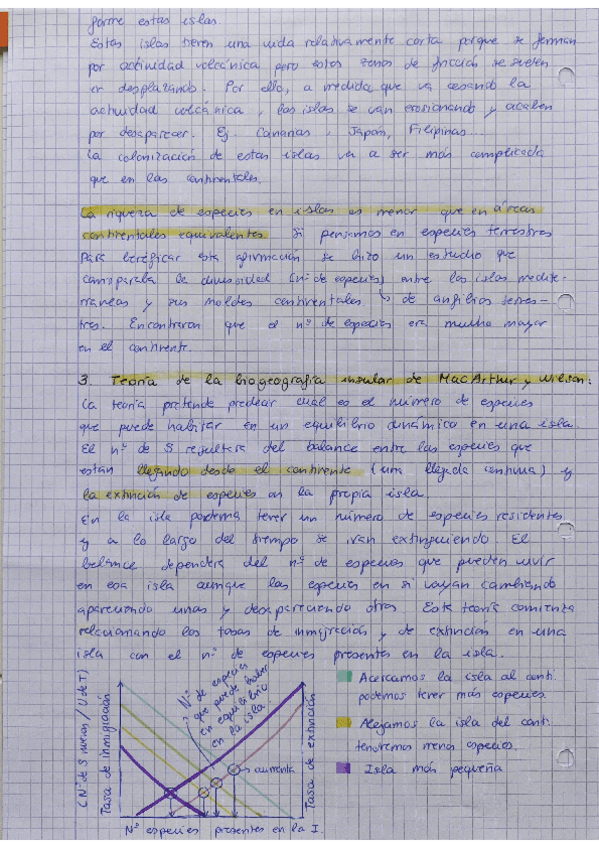 forme estas islas.
Estas islas tienen una vida relativamente corta porque se forman
por actividad volcánica pero estas zonas de fricción se suelen
ir desplazando. Por ello, a medida que va cesando la
actividad volcánica, las islas se van erosionando y acaban
por desaparecer. Ej. Canarias, Japón, Filipinas...
La colonización de estas islas va a ser más complicada
que en las continentales.
La riqueza de especies en islas es menor que en áreas
continentales equivalentes. Si pensamos en especies terrestres
Para verificar esta afirmación se hizo un estudio que
comparaba la diversidad (nº de especies) entre las islas medite-
rráneas y sus moldes continentales ↳ de anfibios terres-
tres. Encontraron que el nº de especies era mucho mayor
en el continente.
3. Teoría de la biogeografía insular de MacArthur y Wilson:
La teoría pretende predecir cual es el número de especies
que puede habitar en un equilibrio dinámico en una isla.
El nº de S resultera del balance entre las especies que
están llegando desde el continente (una llegada continua) y
la extinción de especies en la propia isla.
En la isla podemos tener un número de especies residentes
y a lo largo del tiempo se irán extinguiendo. El
balance dependera del nº de especies que pueden vivir
en esa isla aunque las especies en si vayan cambiando
apareciendo unas y desapareciendo otras. Esta teoría comienza
relacionando las tasas de inmigración y de extinción en una
isla con el nº de especies presentes en la isla.
(Nº de S nuevas / U de T)
Tasa de inmigración
Nº de especies
que puede haber
en equilibrio
en la isla
aumenta
Tasa de extinción
Nº especies presentes en la I.
Acercamos la isla al conti.
podemos tener más especies.
Alejamos la isla del cont.
tendremos menos especies.
Isla más pequeña